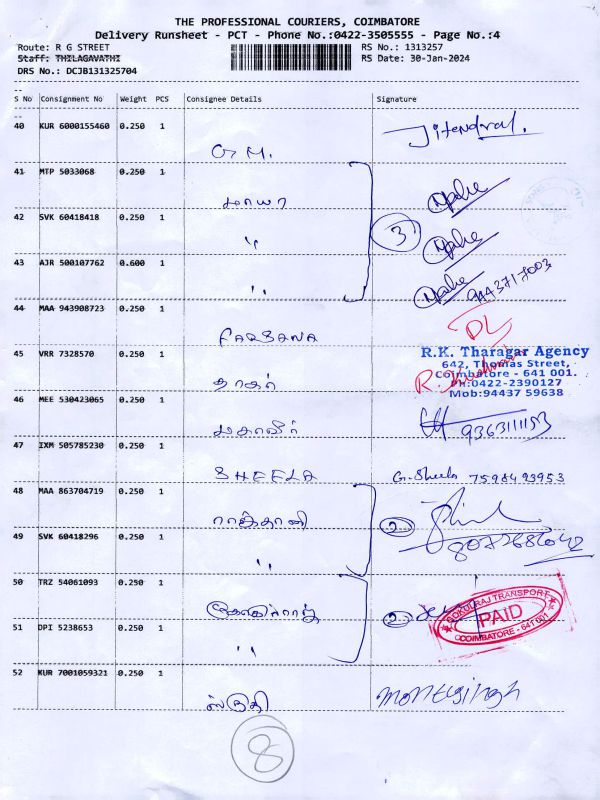 THE PROFESSIONAL COURIERS, COIMBATORE
Delivery Runsheet - PCT - Phone No.:0422-3505555 - Page No.:4
Route: R G STREET
RS No.: 1313257
Staff: THILAGAVATHI
RS Date: 30-Jan-2024
DRS No.: DCJB131325704
S No Consignment No Weight PCS Consignee Details Signature
40 KUR 6000155460 0.250 1
G.M. Jitendral.
41 MTP 5033068 0.250 1
மாயா
42 SVK 60418418 0.250 1
" 3
43 AJR 500107762 0.600 1
"
44 MAA 943908723 0.250 1
FARSANA DL
45 VRR 7328570 0.250 1
தாகர்
R.K. Tharagar Agency
642, Thomas Street,
Coimbatore - 641 001.
Ph:0422-2390127
Mob:94437 59638
46 MEE 530423065 0.250 1
மகாவீர் 9363111153
47 IXM 505785230 0.250 1
SHEELA G. Sheela 7598493953
48 MAA 863704719 0.250 1
ராஜ்தானி 2
49 SVK 60418296 0.250 1
"
50 TRZ 54061093 0.250 1
கோகுல்ராஜ் 2
GOKULRAJ TRANSPORT
PAID
COIMBATORE - 641 001
51 DPI 5238653 0.250 1
"
52 KUR 7001059321 0.250 1
ஸ்ருதி
8